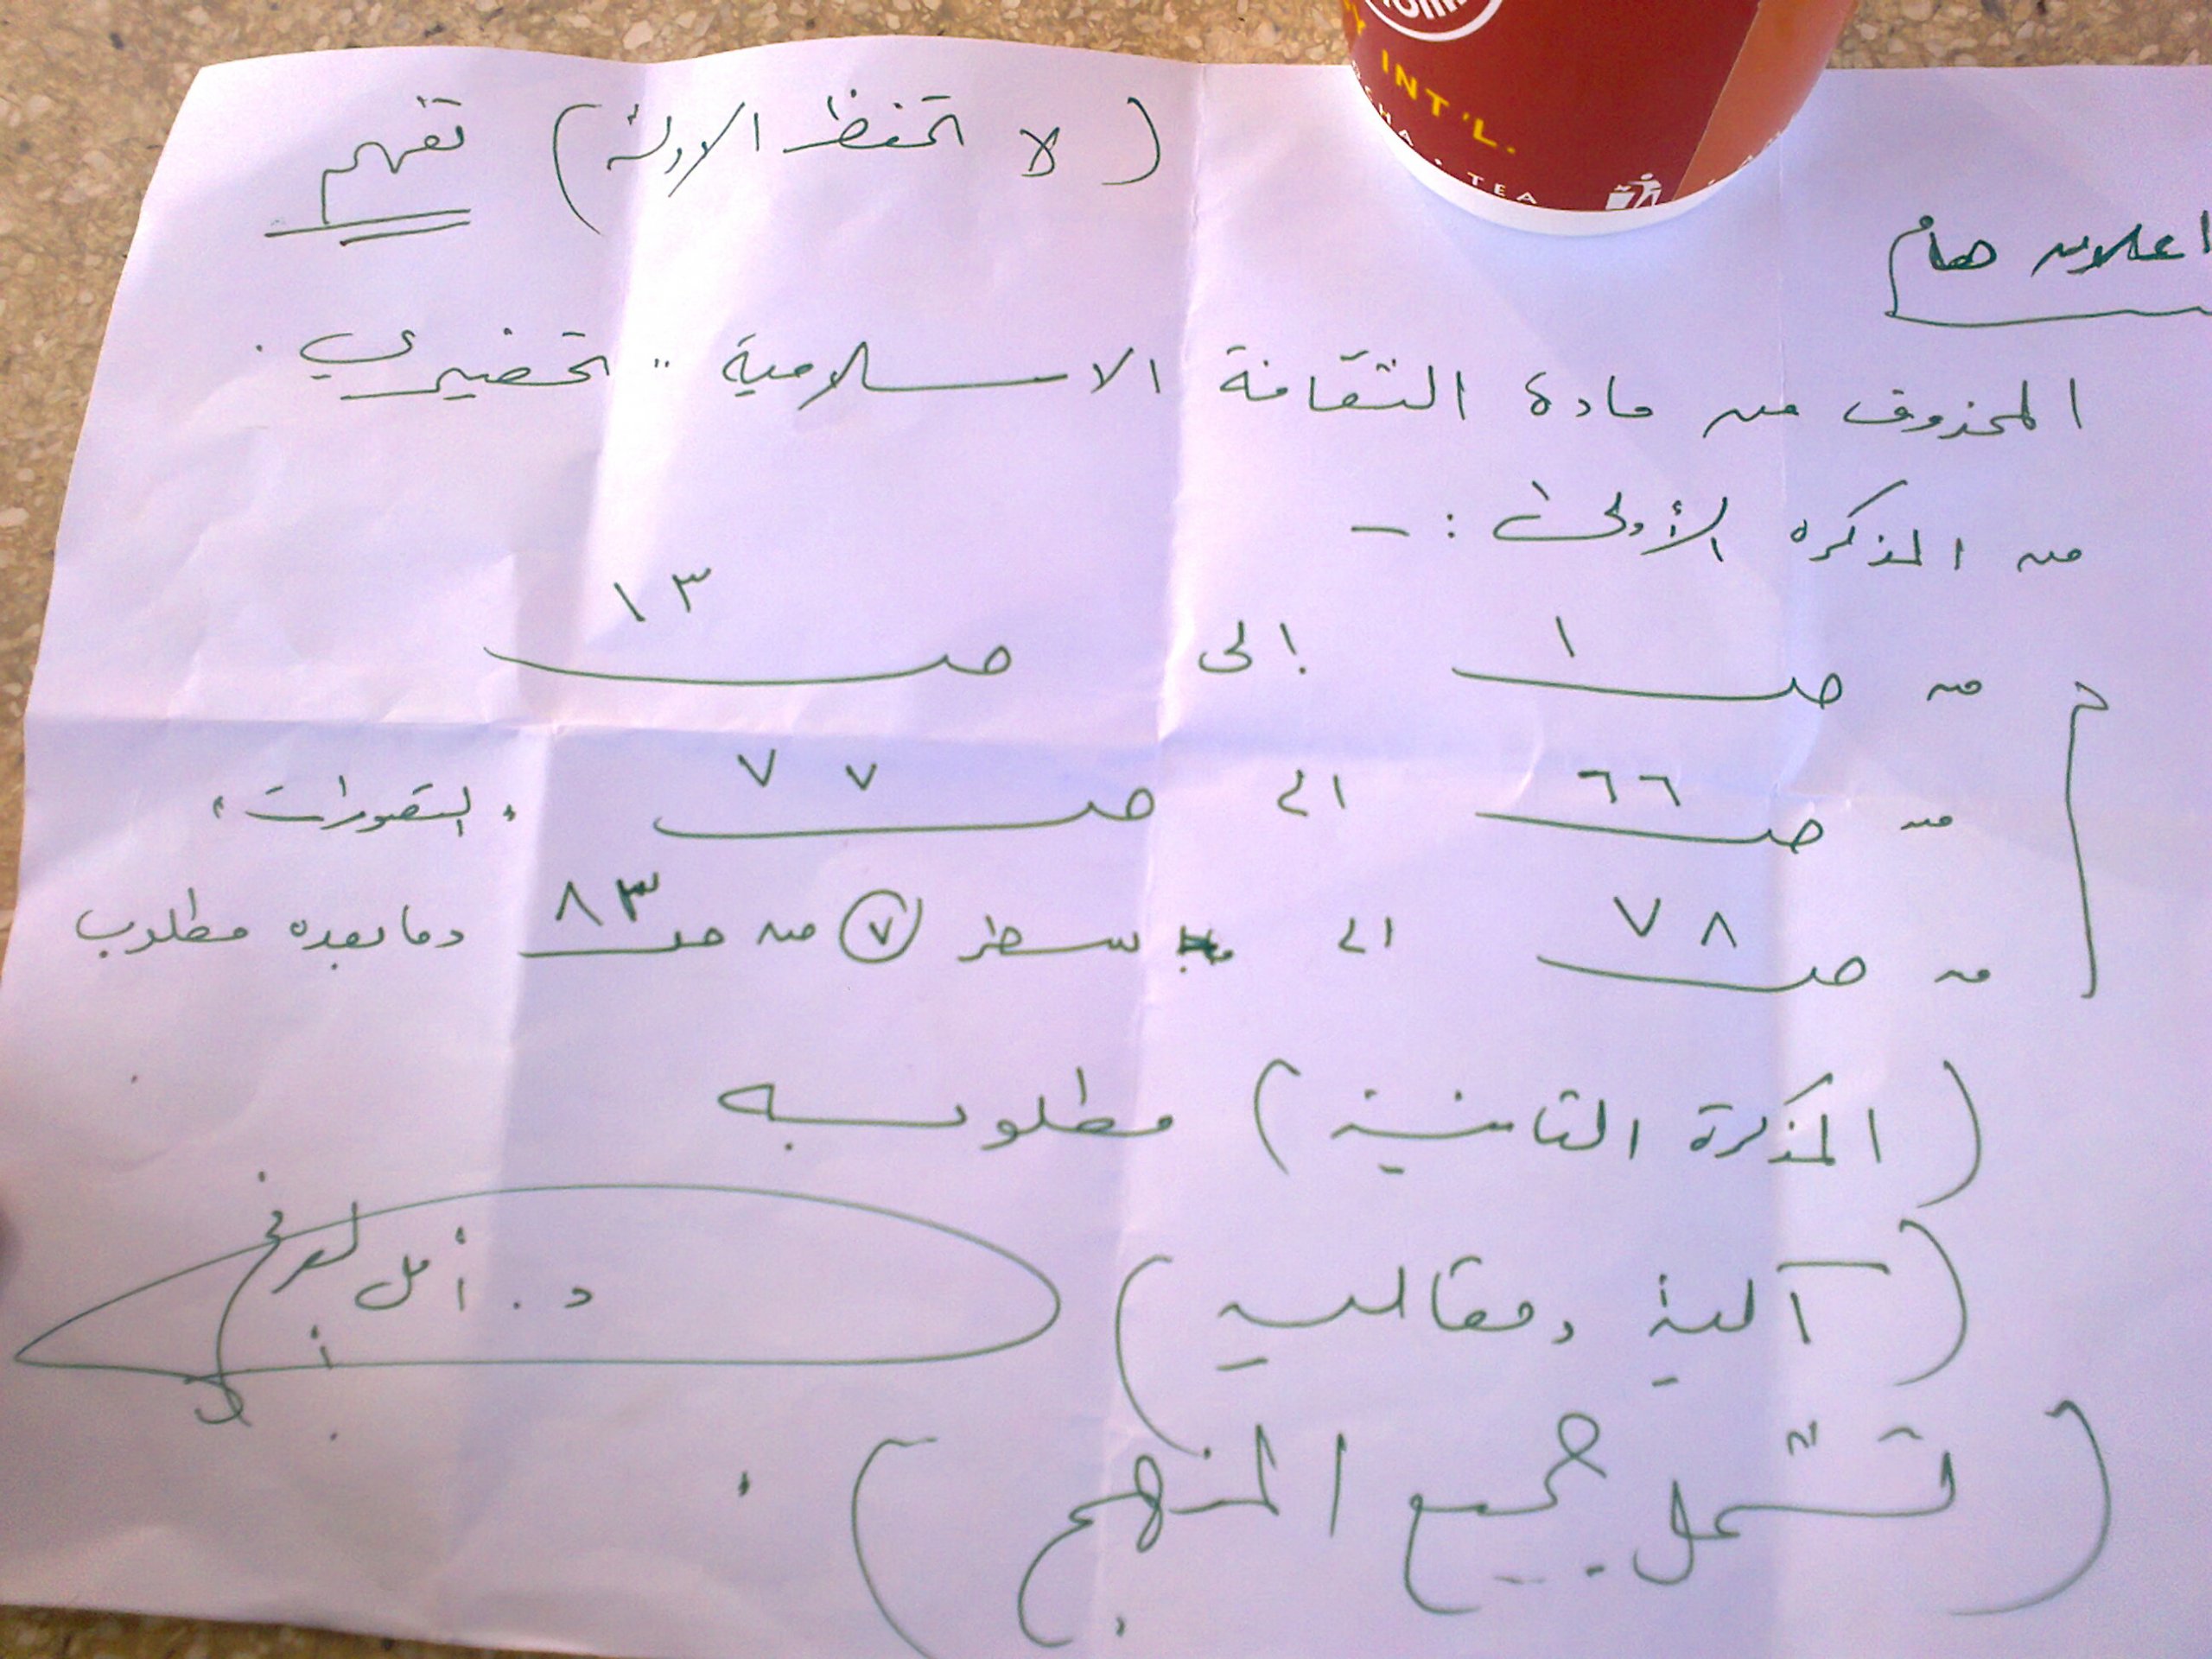 INT'L.
TEA
( لا تحفظ الادلة ) تفهم
اعلان هام
المحذوف من مادة الثقافة الاسلامية " تحضيري .
من المذكره الأولى : -
من صـ ١ إلى صـ ١٣
من صـ ٦٦ الى صـ ٧٧ " التصورات "
من صـ ٧٨ الى سطر ٧ من صـ ٨٣ وما بعده مطلوب
( المذكرة الثانية ) مطلوبه
( آلية ومقاليه ) د. أمل
( تشمل جميع المنهج ) .